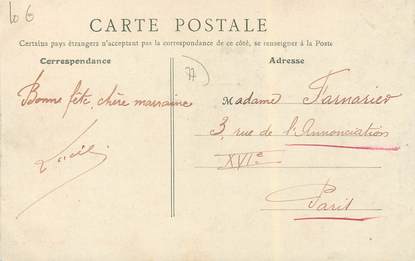 10 €
CARTE POSTALE
Certains pays étrangers n'acceptant pas la correspondance de ce côté, se renseigner à la Poste
Correspondance
77
Adresse
Bonne fête, chère marraine
Madame Farnarier
3, rue de l'Annonciation
XVIe
Paris